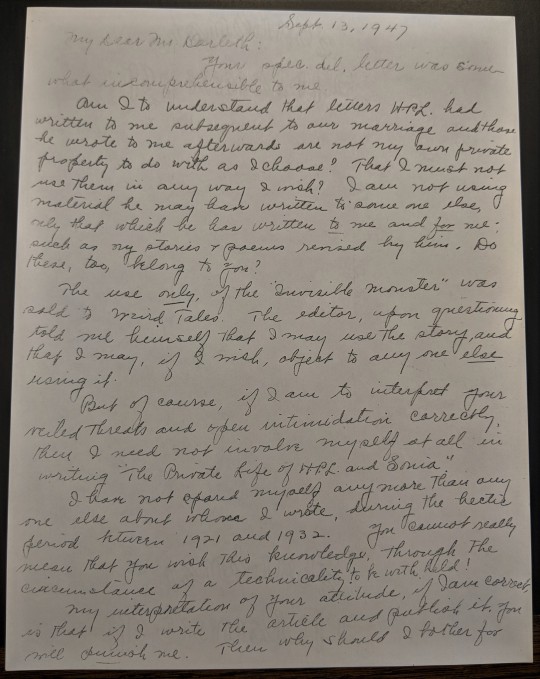 Sept. 13, 1947
My dear Mr. Derleth:
Your spec. del. letter was some-
what incomprehensible to me
Am I to understand that letters H.P.L. had
written to me subsequent to our marriage and those
he wrote to me afterwards are not my own private
property to do with as I choose? That I must not
use them in any way I wish? I am not using
material he may have written to some one else,
only that which he has written to me and for me;
such as my stories & poems revised by him. Do
these, too, belong to you?
The use only, of the "Invisible Monster" was
sold to Weird Tales. The editor, upon questioning
told me himself that I may use the story, and
that I may, if I wish, object to any one else
using it.
But of course, if I am to interpret your
veiled threats and open intimidation correctly,
then I need not involve myself at all in
writing "The Private Life of H.P.L. and Sonia".
I have not spared myself any more than any
one else about whom I wrote, during the hectic
period between 1921 and 1932. You cannot really
mean that you wish this knowledge, through the
circumstance of a technicality, to be with held!
My interpretation of your attitude, if I am correct,
is that if I write the article and publish it, you
will punish me. Then why should I bother for